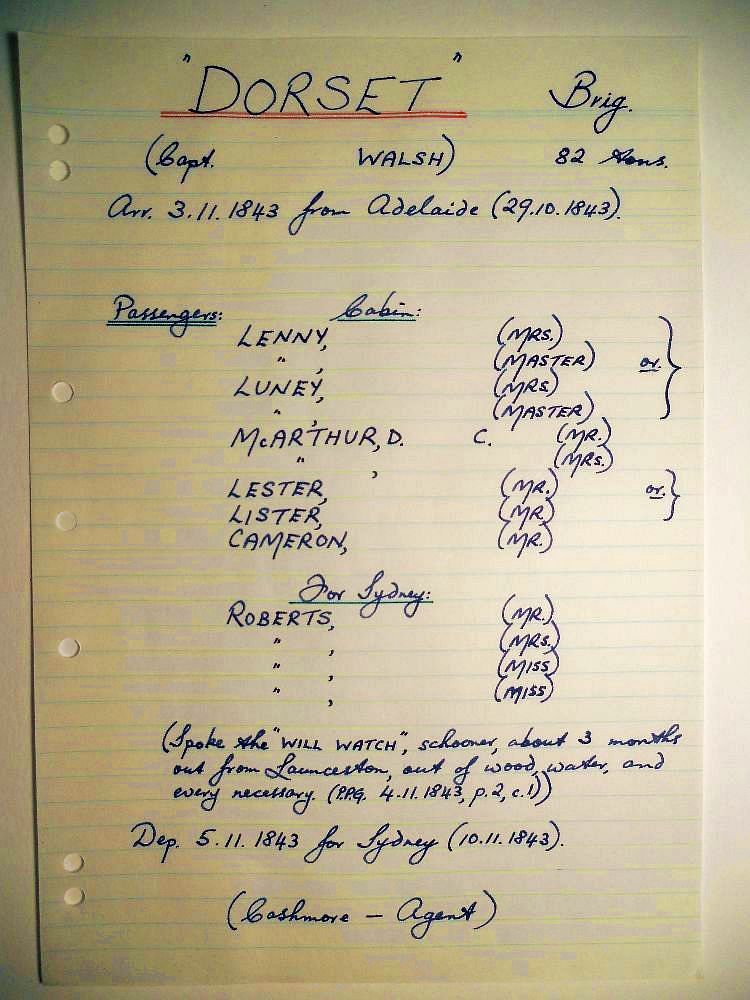 "DORSET" Brig.
(Capt. WALSH) 82 tons.
Arr. 3.11.1843 from Adelaide (29.10.1843).
Passengers: Cabin:
LENNY, (MRS.)
" , (MASTER) or.
LUNEY, (MRS.)
" , (MASTER)
McARTHUR, D. C. (MR.)
" , (MRS.)
LESTER, (MR.) or.
LISTER, (MR.)
CAMERON, (MR.)
For Sydney:
ROBERTS, (MR.)
" , (MRS.)
" , (MISS)
" , (MISS)
(Spoke the "WILL WATCH", schooner, about 3 months
out from Launceston, out of wood, water, and
every necessary. (P.P.G. 4.11.1843, p.2, c.1))
Dep. 5.11.1843 for Sydney (10.11.1843).
(Cashmore — Agent)